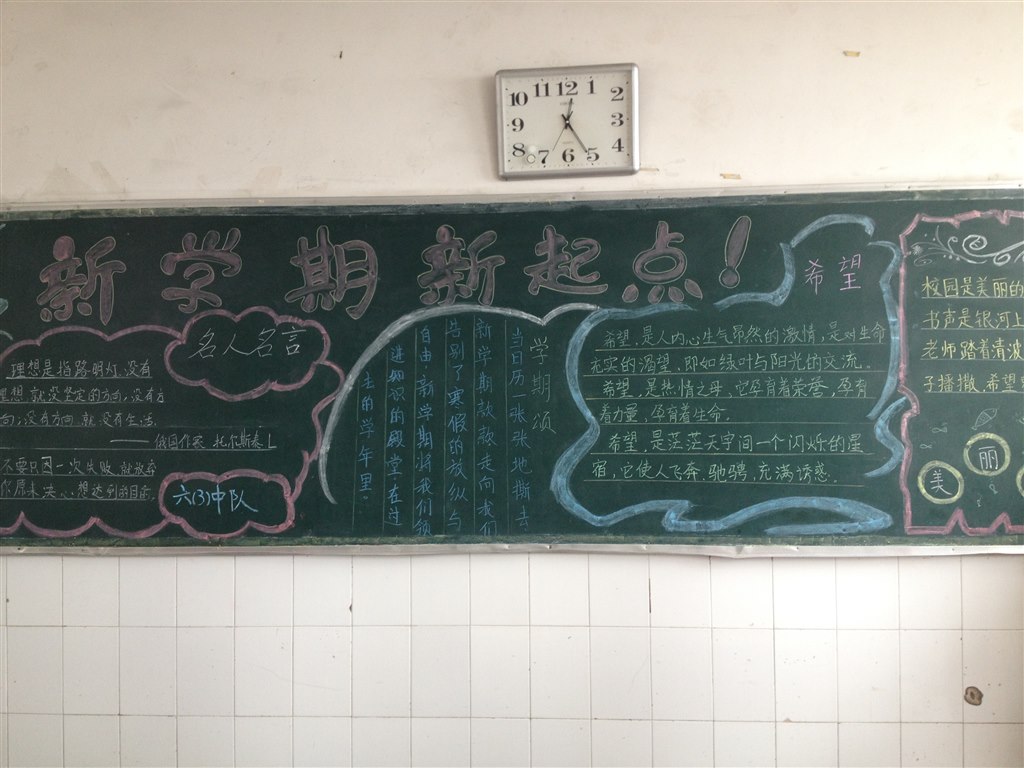 11 12 1
10 2
9 3
8 4
7 6 5
新学期新起点!
名人名言
理想是指路明灯,没有
理想就没坚定的方向,没有方
向,没有方向就没有生活
——俄国作家 托尔斯泰
不要只因一次失败,就放弃
你原来决心想达到的目的
六(3)中队
学期颂
当日历一张张地撕去
新学期款款走向我们
告别了寒假的放纵与
自由.新学期将我们领
进知识的殿堂在过
去的学年里。
希望
希望,是人内心生气昂然的激情,是对生命
充实的渴望,即如绿叶与阳光的交流.
希望,是热情之母,它孕育着荣誉,孕有
着力量,孕育着生命.
希望,是茫茫天宇间一个闪烁的星
宿,它使人飞奔,驰骋,充满诱惑.
校园是美丽的
书声是银河上
老师踏着清波
子播撒.希望
美
丽